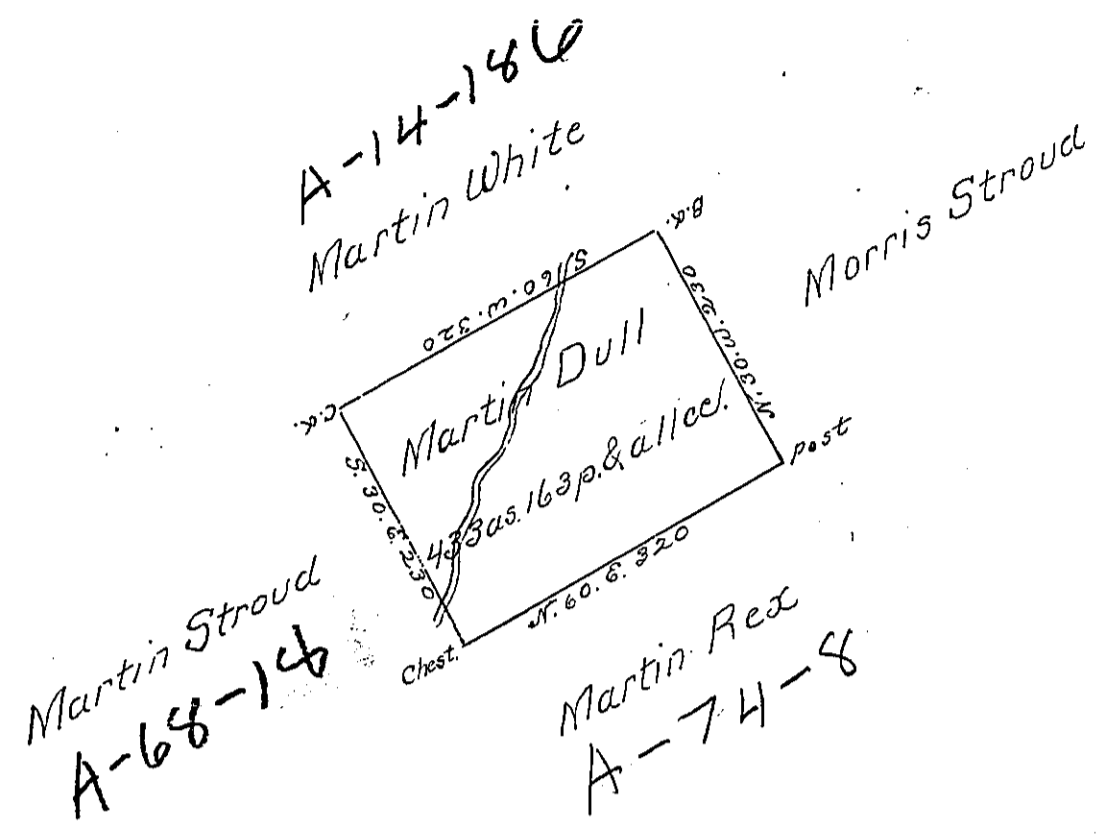 A-14-186
Martin White
Morris Stroud
B.O.
S. 60. W. 320
C.O.
N. 30. W. 230
Martin Dull
433 as. 163 p. & allce.
Post
S. 30. E. 230
N. 60. E. 320
Chest.
Martin Stroud
A-68-18
Martin Rex
A-74-8